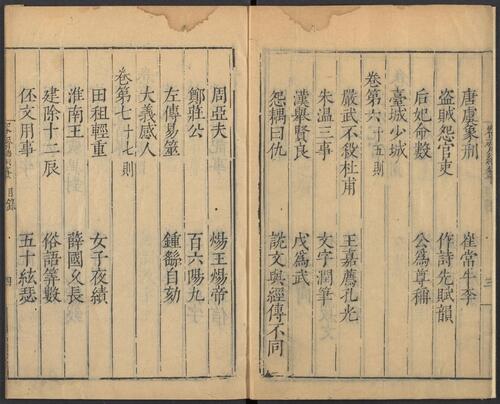 唐虞象刑　崔常牛李
盜賊怨官吏　作詩先賦韻
后妃命數　公為尊稱
臺城少城
卷第六 十五則
嚴武不殺杜甫　王嘉薦孔光
朱温三事　文字潤筆
漢舉賢良　戊為武
怨耦曰仇　說文與經傳不同
周亞夫　煬王煬帝
鄭莊公　百六陽九
左傳易筮　鍾繇自劾
大義感人
卷第七 十七則
田租輕重　女子夜績
淮南王　薛國久長
建除十二辰　俗語筭數
伾文用事　五十絃瑟
目錄　四